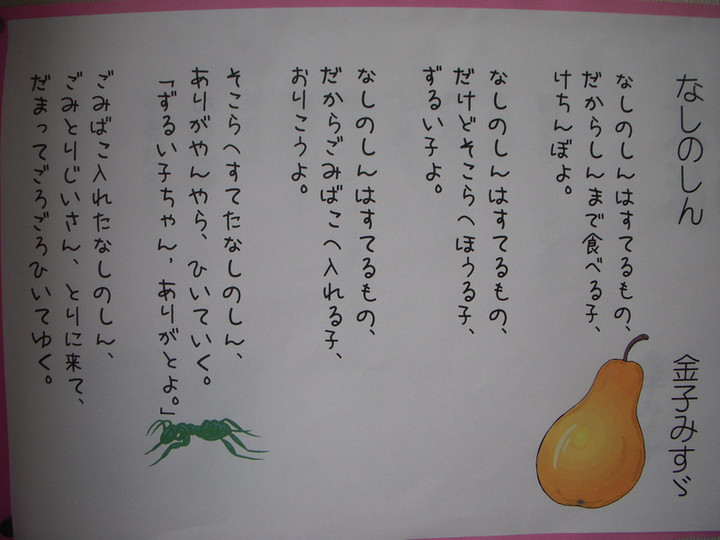 なしのしん
金子みすゞ
なしのしんはすてるもの、
だからしんまで食べる子、
けちんぼよ。
なしのしんはすてるもの、
だけどそこらへほうる子、
ずるい子よ。
なしのしんはすてるもの、
だからごみばこへ入れる子、
おりこうよ。
そこらへすてたなしのしん、
ありがやんやら、ひいていく。
「ずるい子ちゃん、ありがとよ。」
ごみばこ入れたなしのしん、
ごみとりじいさん、とりに来て、
だまってごろごろひいてゆく。